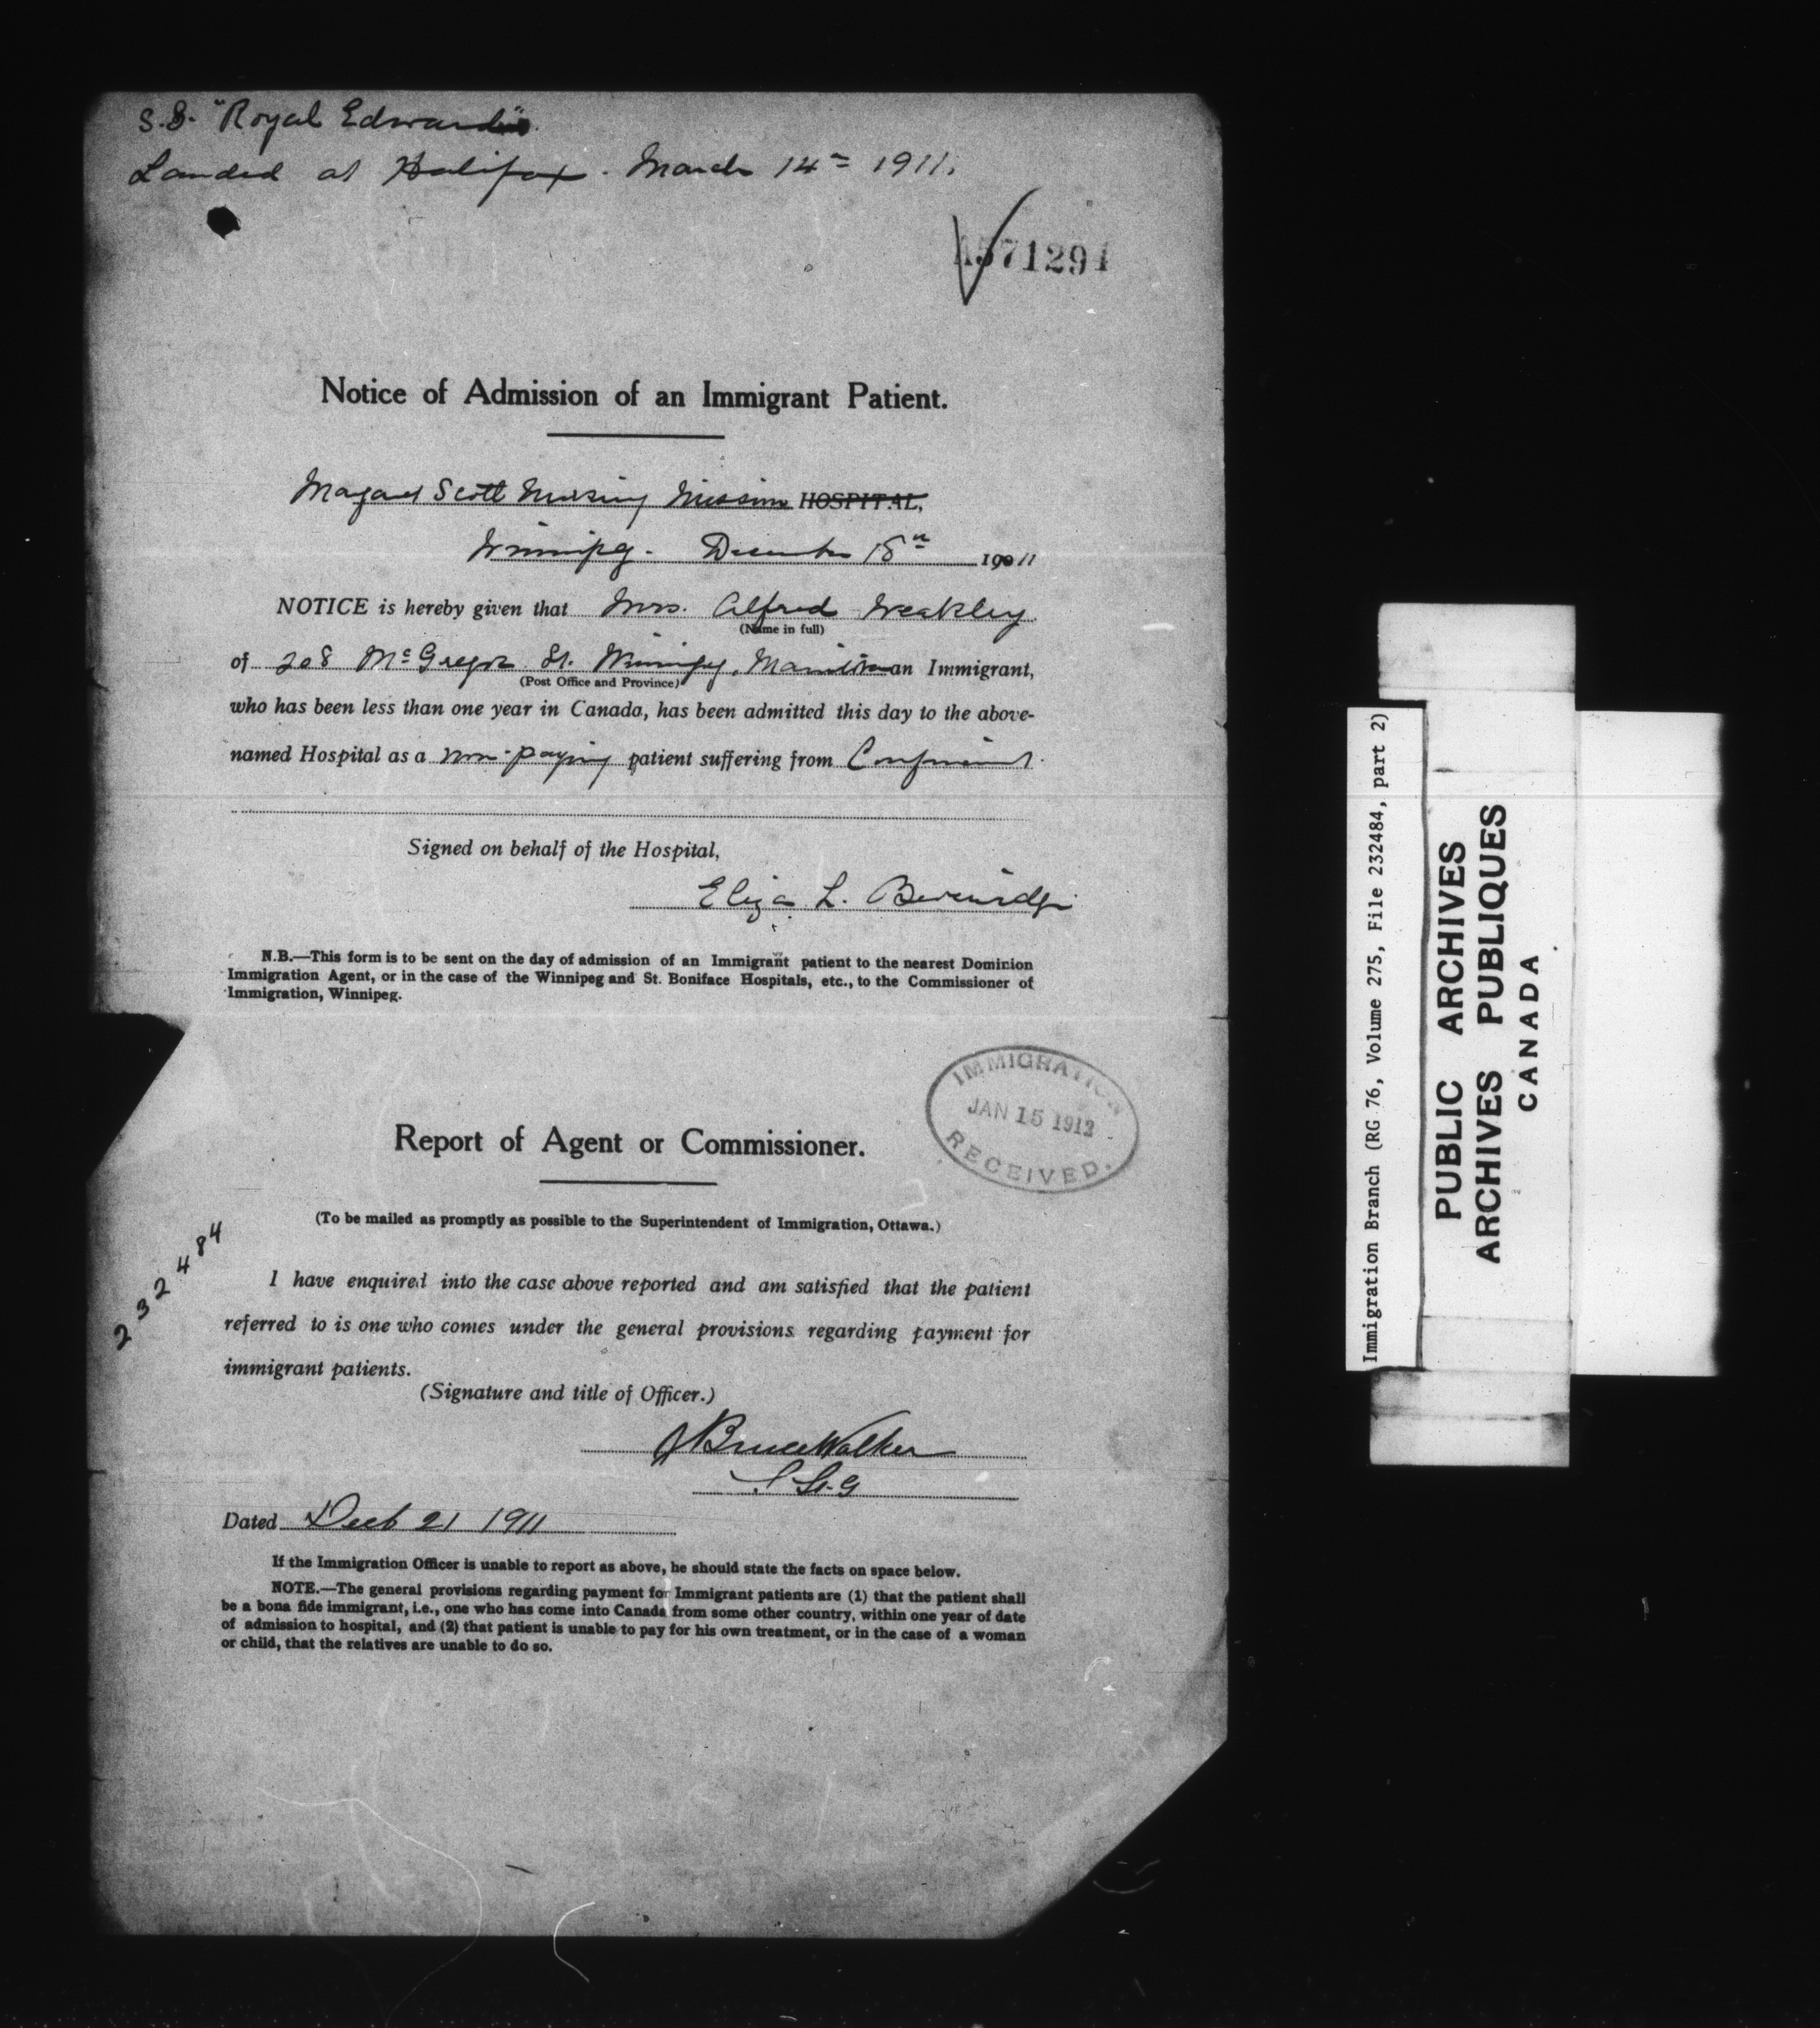 S.S. "Royal Edward"
Landed at Halifax. March 14th 1911.
A571291
Notice of Admission of an Immigrant Patient.
Margaret Scott Nursing Mission HOSPITAL,
Winnipeg. December 18th 1911
NOTICE is hereby given that Mrs. Alfred Weakley
(Name in full)
of 208 McGregor St. Winnipeg, Manitoba an Immigrant,
(Post Office and Province)
who has been less than one year in Canada, has been admitted this day to the above-
named Hospital as a non-paying patient suffering from Confinement.
Signed on behalf of the Hospital,
Eliza L. Beveridge
N.B.—This form is to be sent on the day of admission of an Immigrant patient to the nearest Dominion
Immigration Agent, or in the case of the Winnipeg and St. Boniface Hospitals, etc., to the Commissioner of
Immigration, Winnipeg.
IMMIGRATION
JAN 15 1912
RECEIVED.
Report of Agent or Commissioner.
(To be mailed as promptly as possible to the Superintendent of Immigration, Ottawa.)
232484
I have enquired into the case above reported and am satisfied that the patient
referred to is one who comes under the general provisions regarding payment for
immigrant patients.
(Signature and title of Officer.)
J Bruce Walker
Dated Dec 21 1911
If the Immigration Officer is unable to report as above, he should state the facts on space below.
NOTE.—The general provisions regarding payment for Immigrant patients are (1) that the patient shall
be a bona fide immigrant, i.e., one who has come into Canada from some other country, within one year of date
of admission to hospital, and (2) that patient is unable to pay for his own treatment, or in the case of a woman
or child, that the relatives are unable to do so.
Immigration Branch (RG 76, Volume 275, File 232484, part 2)
PUBLIC ARCHIVES
ARCHIVES PUBLIQUES
CANADA